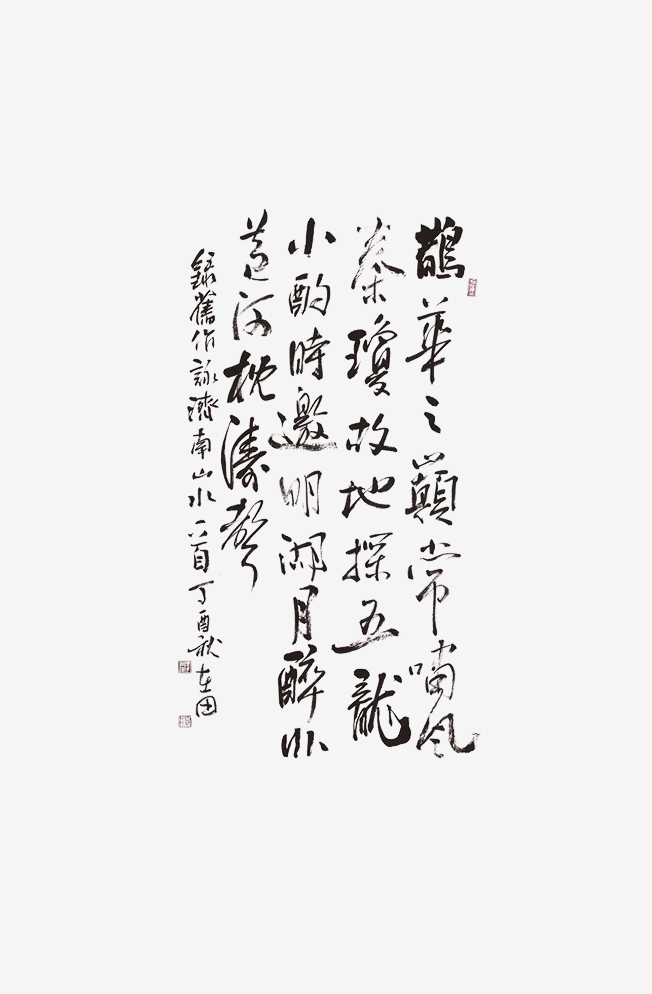 鵲華之巔常嘯風
秦瓊故地探五龍
小酌時邀明湖月醉臥
黃河枕濤聲
錄舊作詠濟南山水一首丁酉秋在田